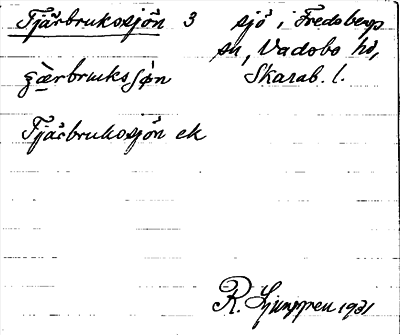 Tjärbrukssjön 3 sjö i Fredsbergs
sn, Vadsbo hd,
Skarab. l.
Tjärbrukssjön ek
R. Ljunggren 1931